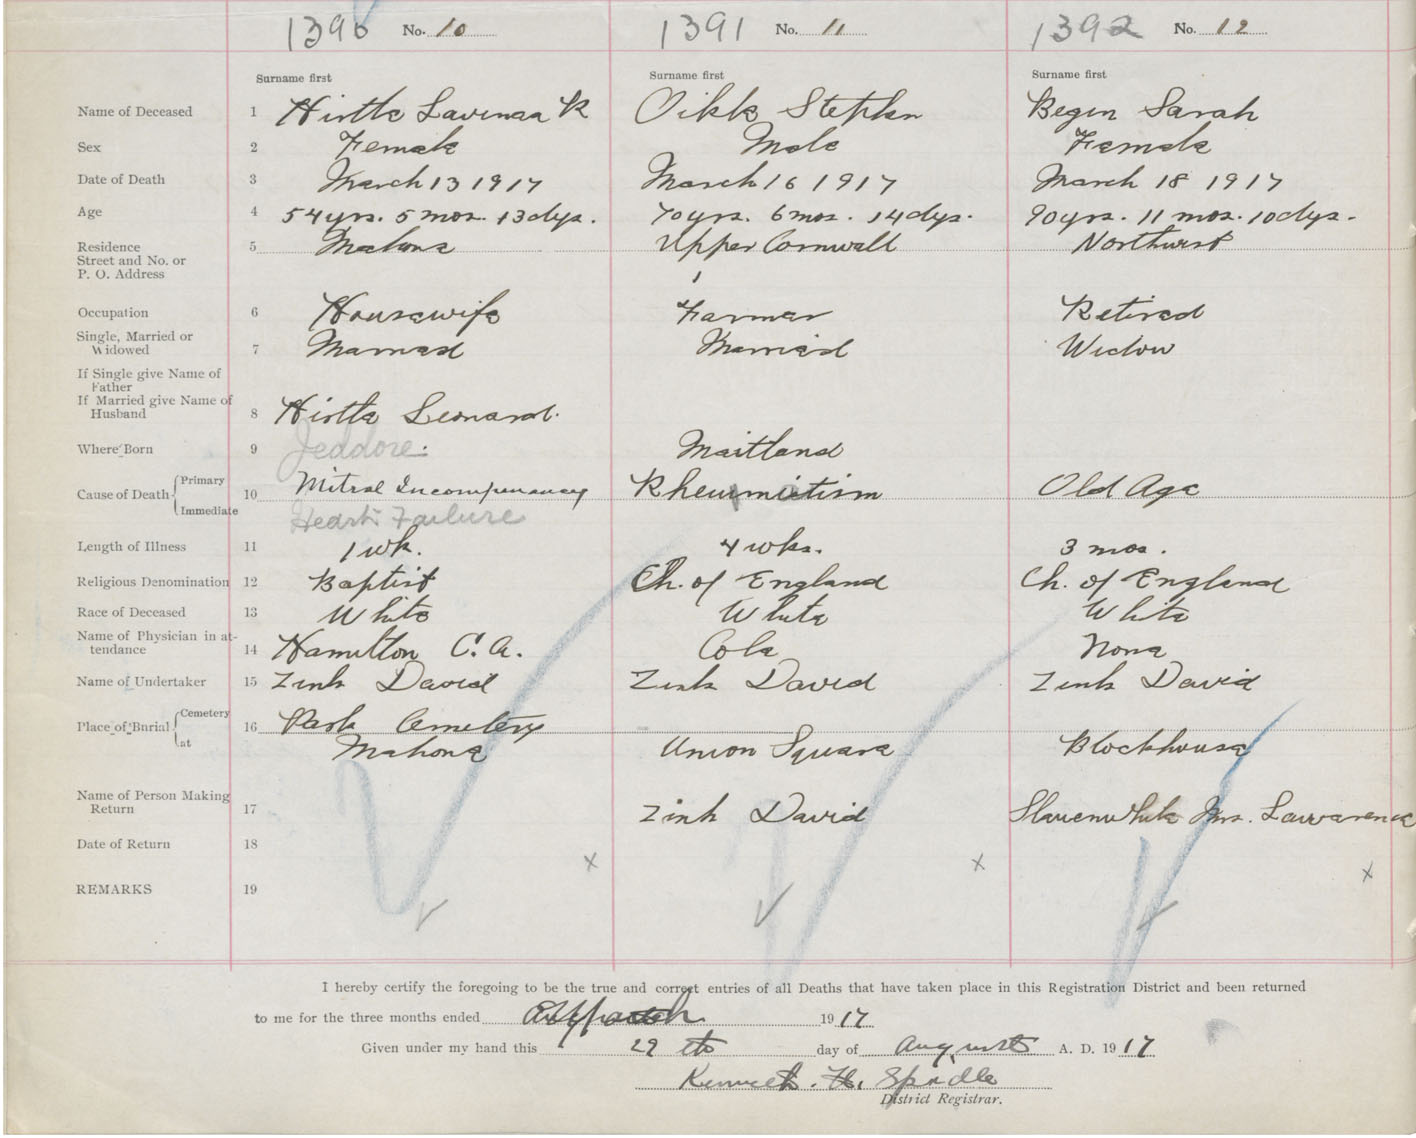 1390 No. 10 1391 No. 11 1392 No. 12
Surname first Surname first Surname first
Name of Deceased 1 Hirtle Lavenaa R Oikle Stephen Begin Sarah
Sex 2 Female Male Female
Date of Death 3 March 13 1917 March 16 1917 March 18 1917
Age 4 54 yrs. 5 mos. 13 dys. 70 yrs. 6 mos. 14 dys. 90 yrs. 11 mos. 10 dys.
Residence 5 Mahone Upper Cornwall Northwest
Street and No. or
P. O. Address
Occupation 6 Housewife Farmer Retired
Single, Married or
Widowed 7 Married Married Widow
If Single give Name of
Father
If Married give Name of
Husband 8 Hirtle Leonard.
Where Born 9 Jeddore. Maitland
Cause of Death Primary 10 Mitral Rheumatism Old Age
Immediate Heart Failure
Length of Illness 11 1 wk. 4 wks. 3 mos.
Religious Denomination 12 Baptist Ch. of England Ch. of England
Race of Deceased 13 White White White
Name of Physician in at-
tendance 14 Hamilton C. A. Cole None
Name of Undertaker 15 Zink David Zink David Zink David
Place of Burial Cemetery 16 Park Cemetery
at Mahone Union Square Blockhouse
Name of Person Making
Return 17 Zink David Slauenwhite Mrs. Lawarence
Date of Return 18
x x x
REMARKS 19
I hereby certify the foregoing to be the true and correct entries of all Deaths that have taken place in this Registration District and been returned
to me for the three months ended 1917
Given under my hand this 29 th day of August A. D. 1917
Kenneth. H. Spidle
District Registrar.